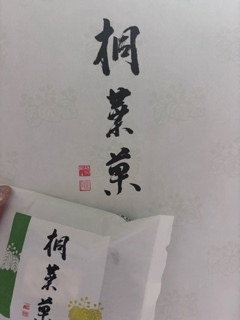 桐葉菓
桐葉菓